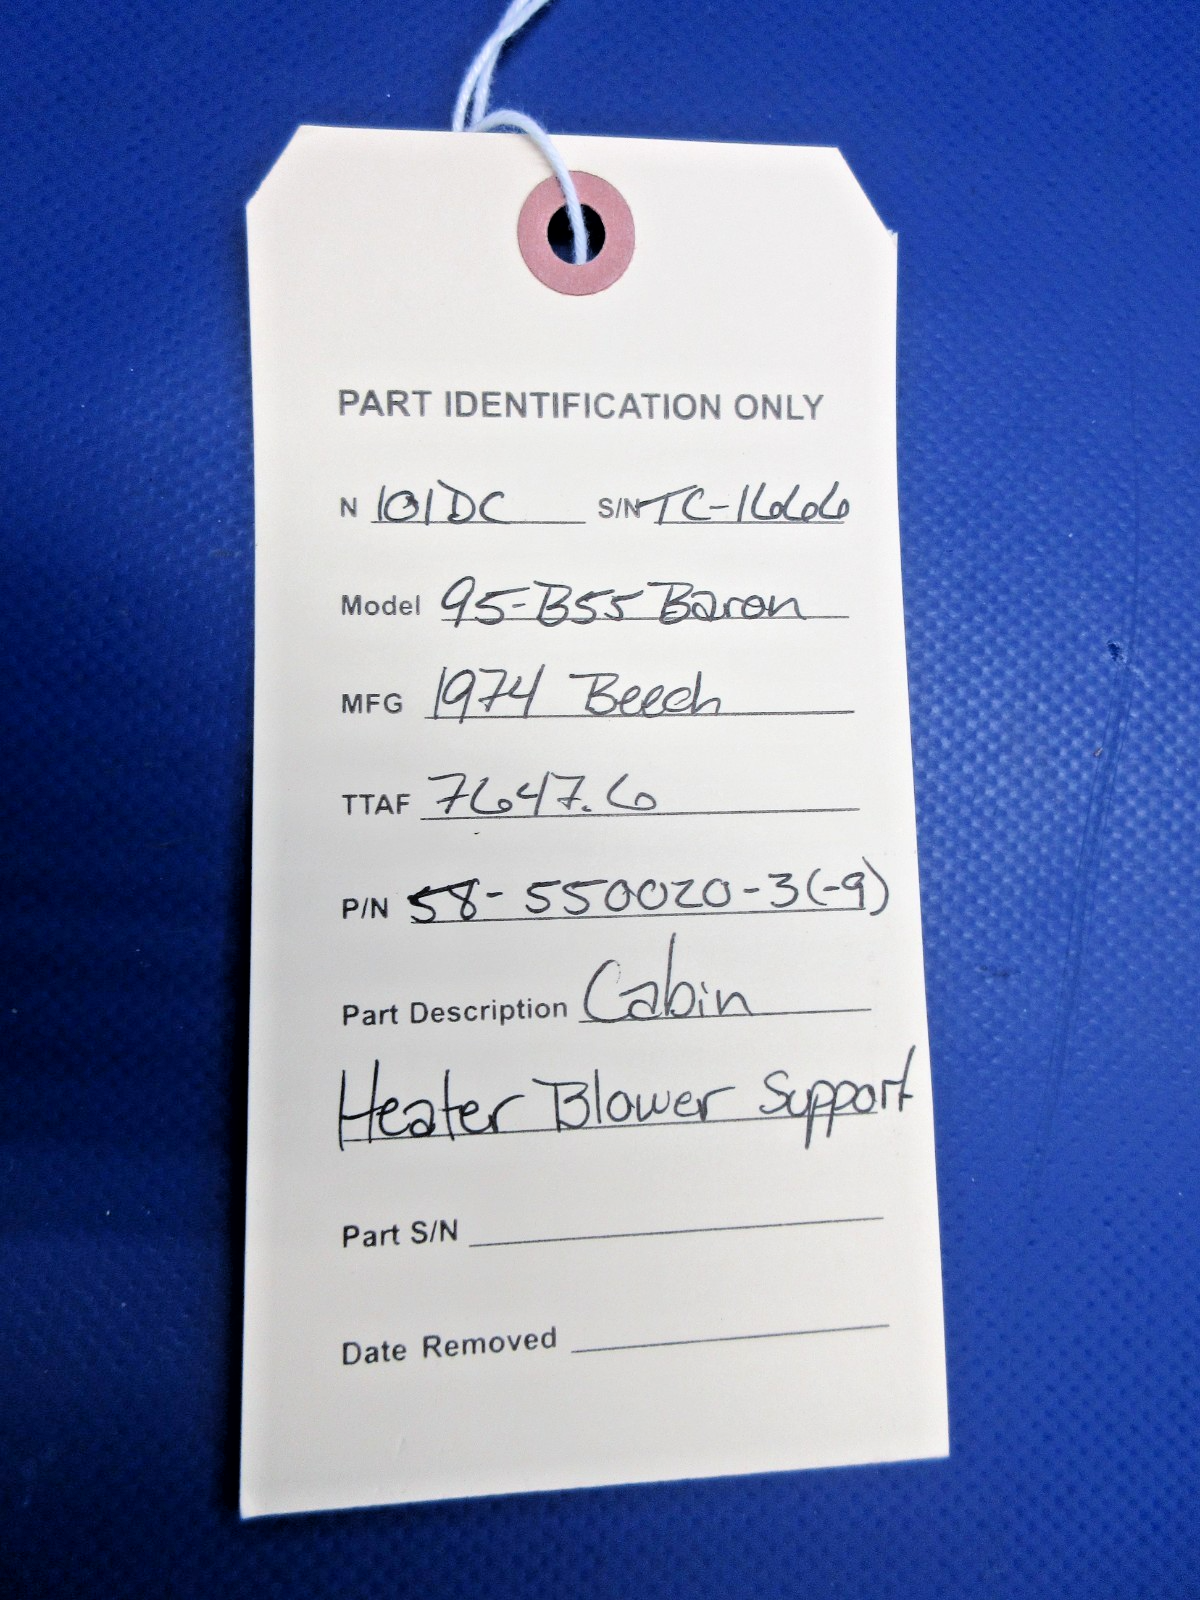 PART IDENTIFICATION ONLY
N 101DC S/N TC-1666
Model 95-B55 Baron
MFG 1974 Beech
TTAF 7647.6
P/N 58-550020-3(-9)
Part Description Cabin
Heater Blower Support
Part S/N
Date Removed